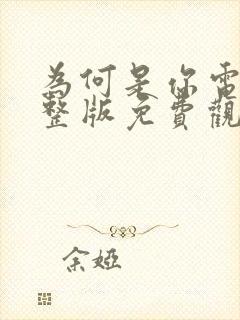 為何是你電
整版免費觀
余婭